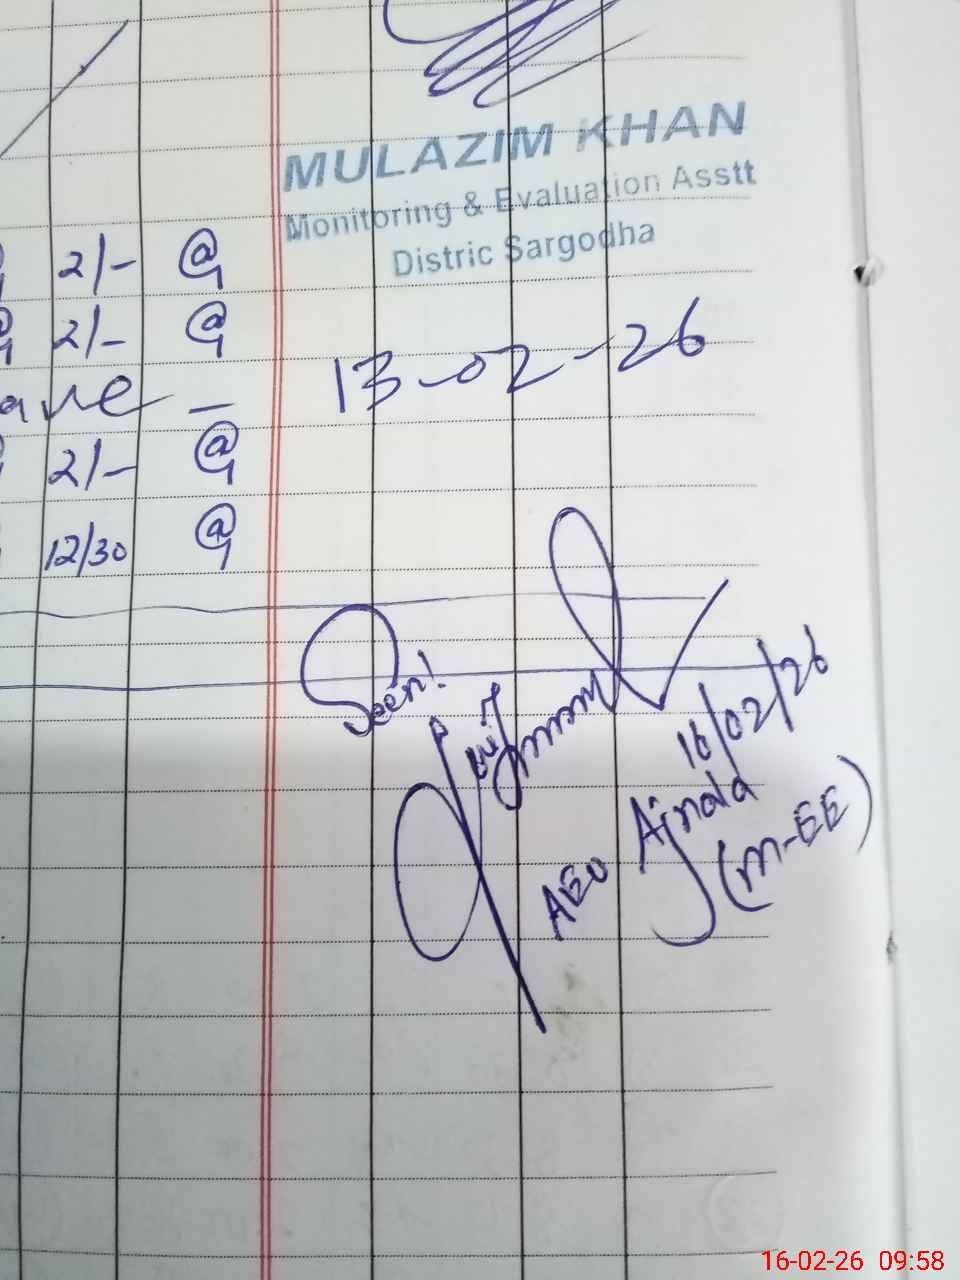 MULAZIM KHAN
Monitoring & Evaluation Asstt
Distric Sargodha
2/- @
2/- @
13-02-26
ave -
2/- @
12/30 @
Seen!
16/02/26
AEO Ajnala
(M-EE)
16-02-26 09:58